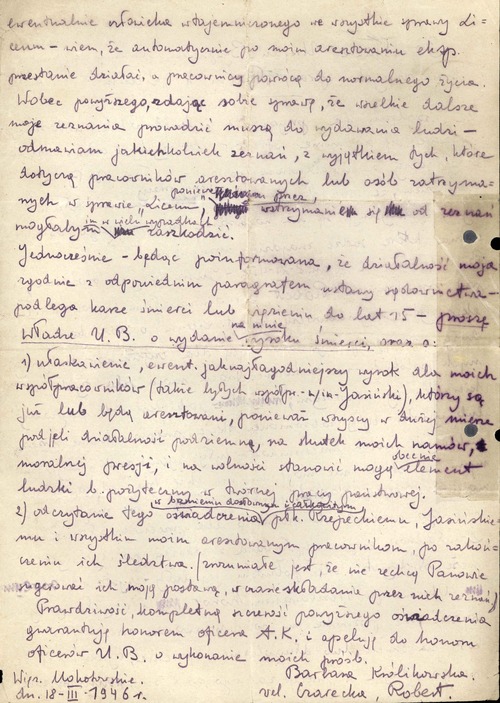 ewentualnie człowieka wtajemniczonego we wszystkie sprawy Li=
ceum - wiem, że automatycznie po moim aresztowaniu eksp.
przestanie działać, a pracownicy powrócą do normalnego życia.
Wobec powyższego, zdając sobie sprawę, że wszelkie dalsze
moje zeznania prowadzić muszą do wydawania ludzi -
odmawiam jakichkolwiek zeznań, z wyjątkiem tych, które
dotyczą pracowników aresztowanych lub osób zatrzyma-
nych w sprawie „Liceum", ponieważ przez wstrzymanie się od zeznań
mogłabym im w wielu wypadkach zaszkodzić.
Jednocześnie - będąc poinformowana, że działalność moja
zgodnie z odpowiednim paragrafem ustawy sądownictwa -
podlega karze śmierci lub więzieniu do lat 15 - proszę
Władze U.B. o wydanie na mnie wyroku śmierci, oraz o:
1) ułaskawienie, ewent. jaknajłagodniejszy wyrok dla moich
współpracowników (także byłych współpr. - Jasiński), którzy są
już lub będą aresztowani, ponieważ wszyscy w dużej mierze
podjęli działalność podziemną, na skutek moich namów,
moralnej presji, i na wolności stanowić mogą obecnie element
ludzki b. pożyteczny w twórczej pracy państwowej.
2) odczytanie tego oświadczenia w brzmieniu dosłownym i całkowitym płk. Rzepeckiemu, Jasińskie-
mu i wszystkim moim aresztowanym pracownikom, po zakoń-
czeniu ich śledztwa. (zrozumiałe jest, że nie zechcą Panowie
sugerować ich moją postawą, w czasie składania przez nich zeznań)
Prawdziwość, kompletną szczerość powyższego oświadczenia
gwarantuję honorem oficera A.K. i apeluję do honoru
oficerów U.B. o wykonanie moich próśb.
Barbara Królikowska.
Więz. Mokotowskie. vel. Czarecka, Robert.
dn. 18-III-1946 r.